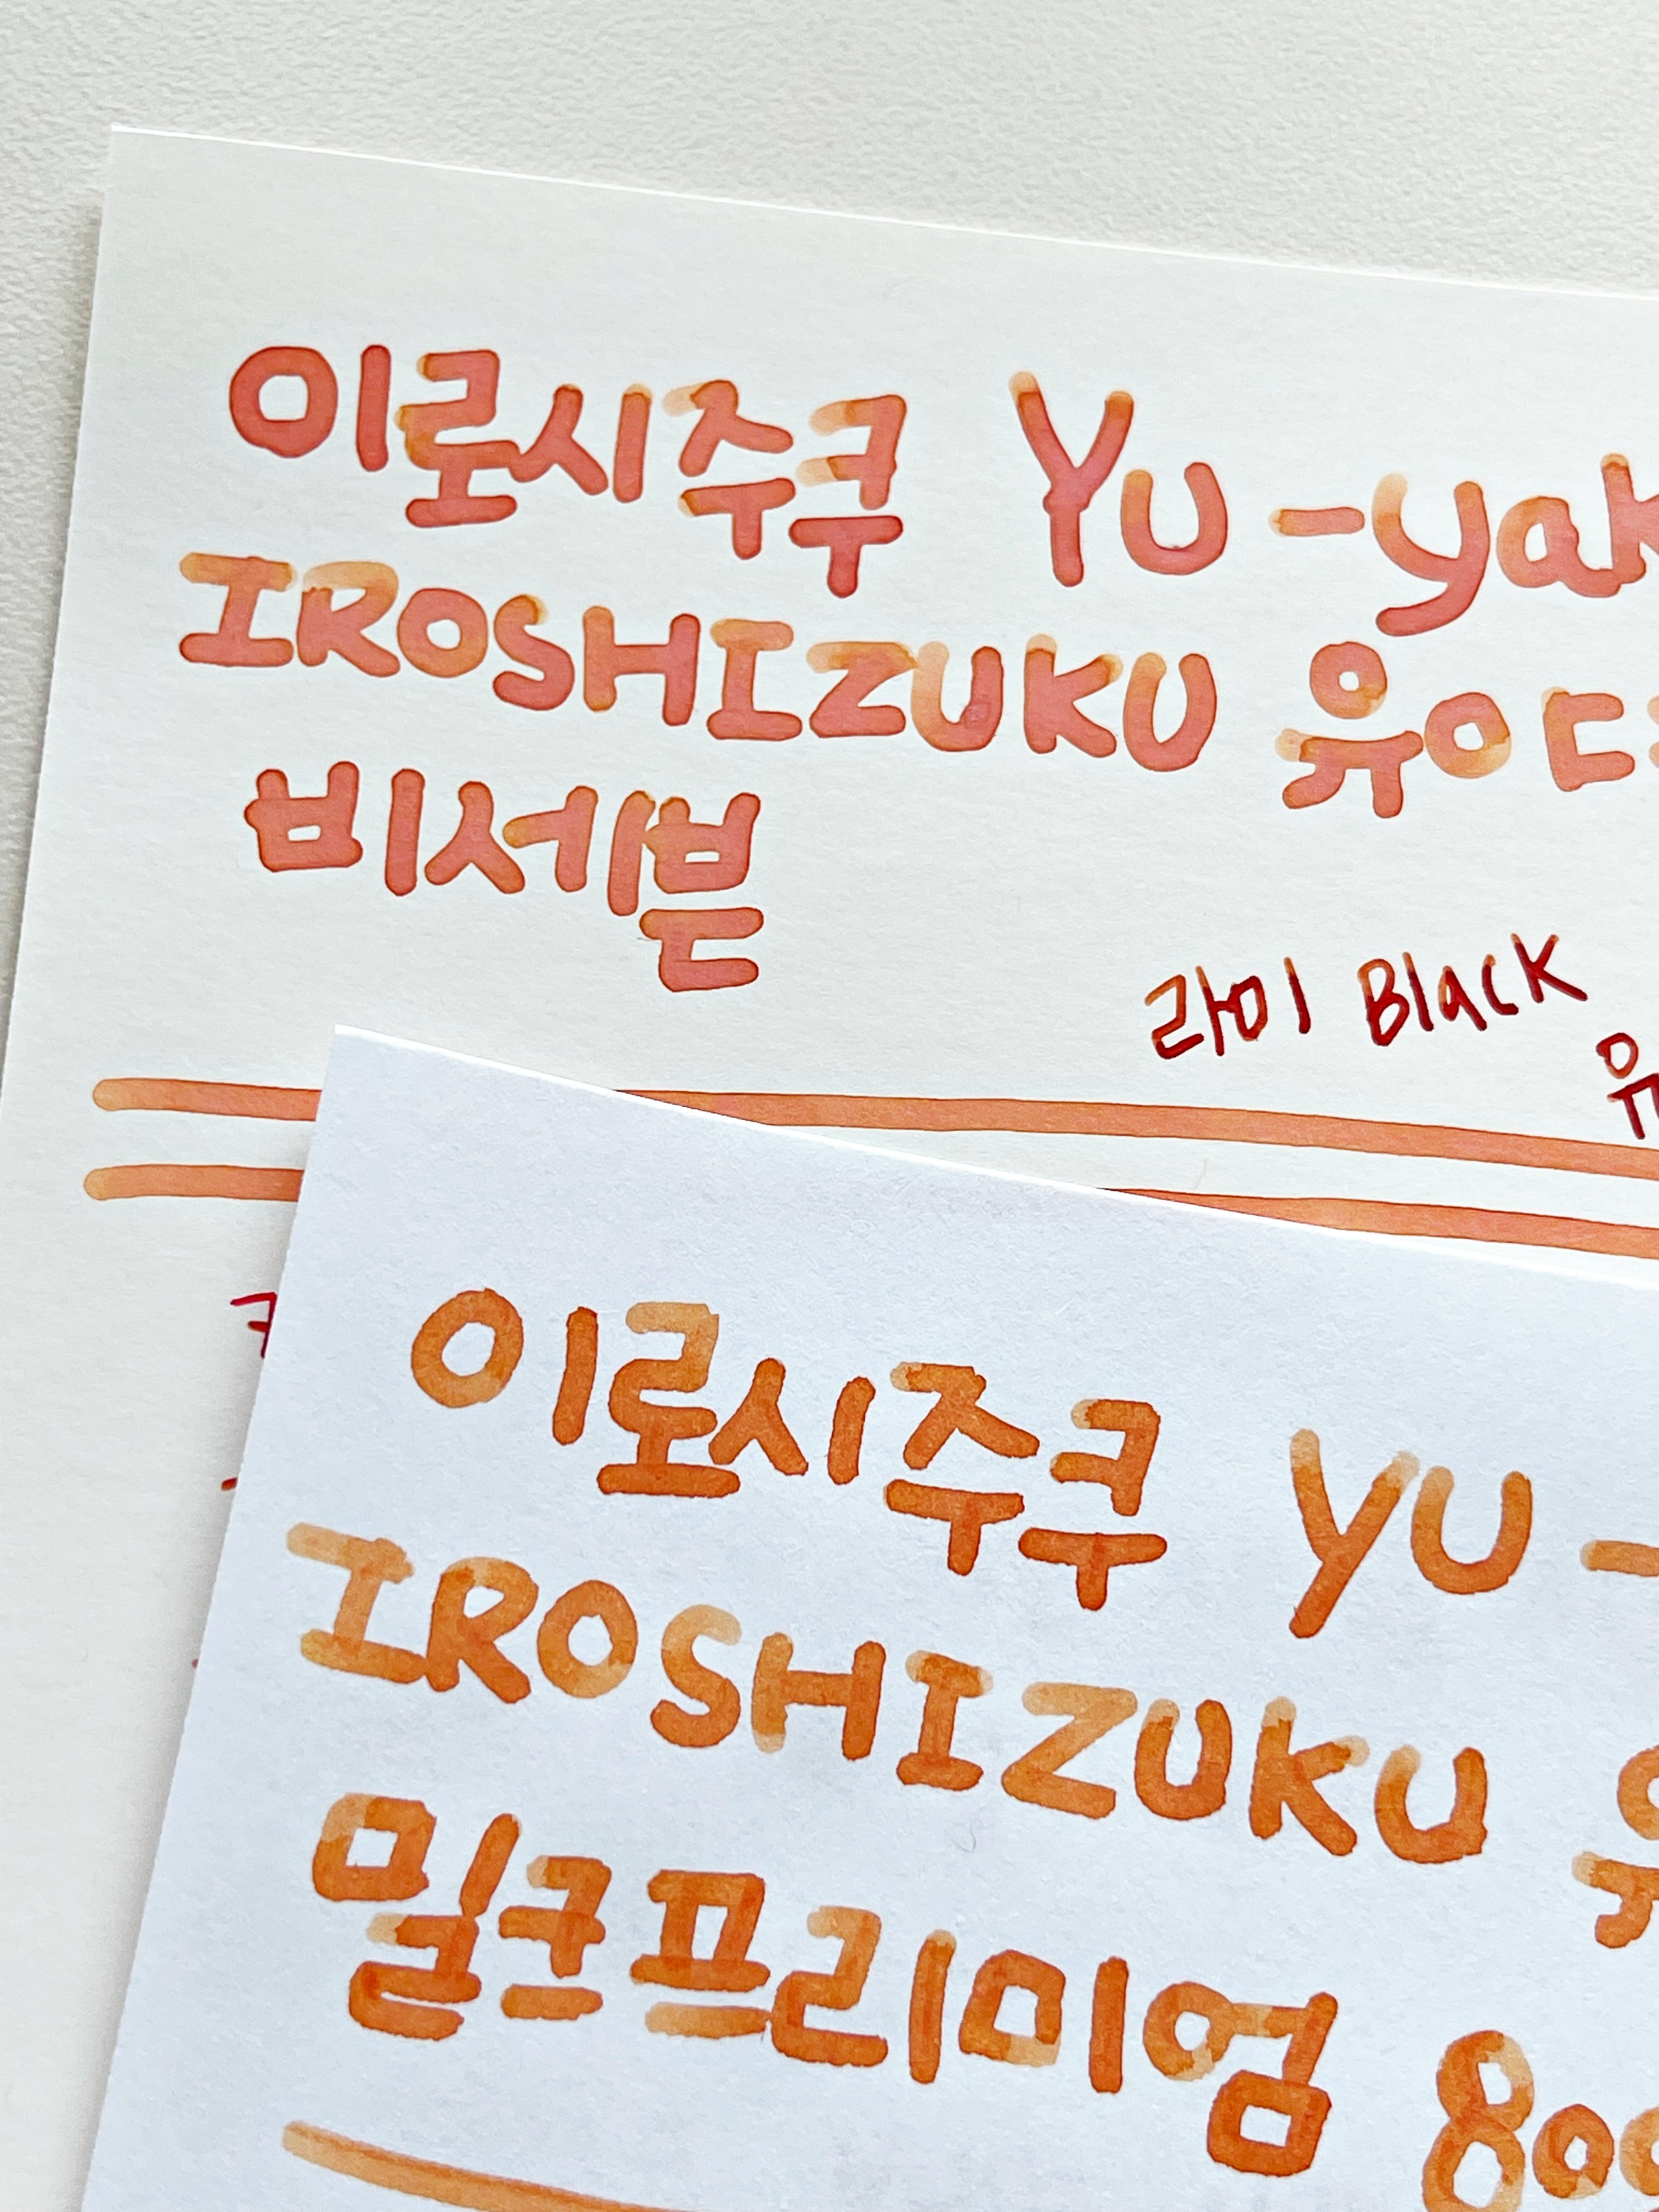 이로시주쿠 Yu-yak
IROSHIZUKU 유야
비세븐
라미 Black
유
이로시주쿠 YU-
IROSHIZUKU 유
밀크프리미엄 80